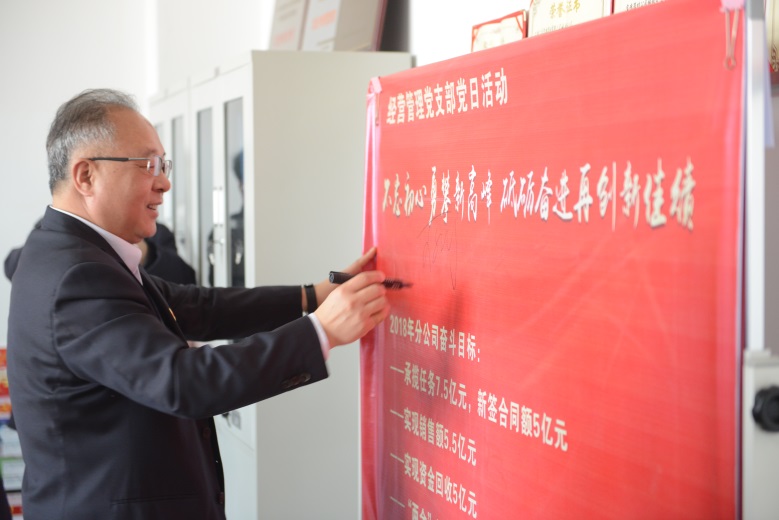 经营管理党支部党日活动
不忘初心勇攀新高峰 砥砺奋进再创新佳绩
2018年分公司奋斗目标：
—承揽任务7.5亿元，新签合同额5亿元
—实现销售额5.5亿元
—实现资金回收5亿元